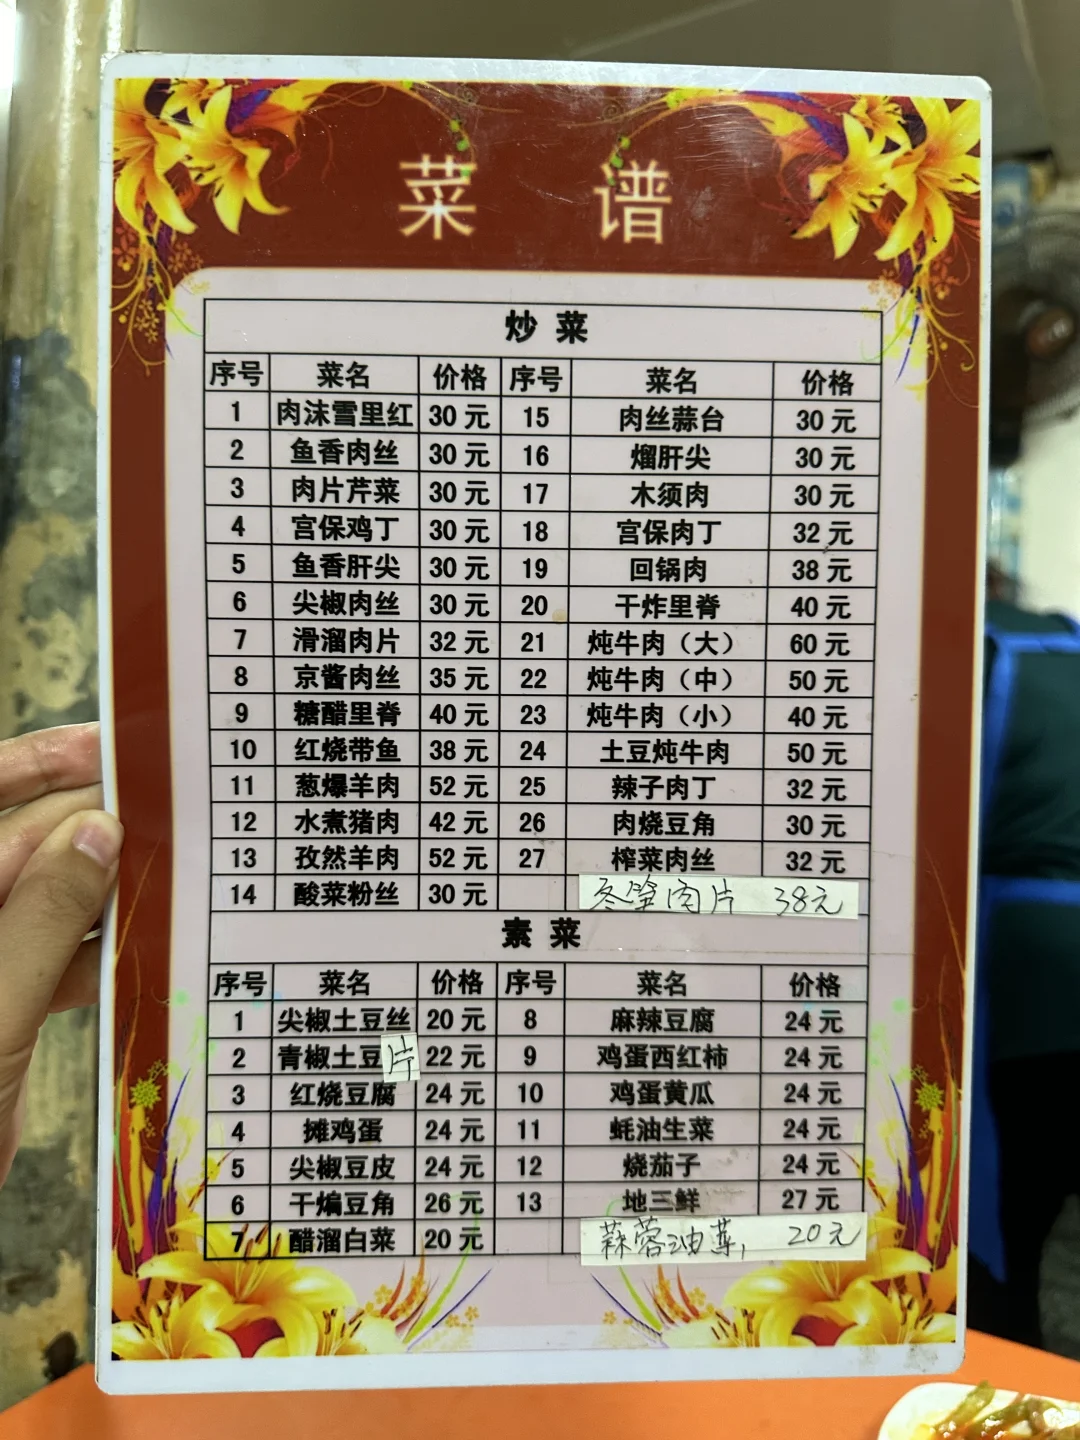 菜 谱
炒 菜
序号 菜名 价格 序号 菜名 价格
1 肉沫雪里红 30 元 15 肉丝蒜台 30 元
2 鱼香肉丝 30 元 16 熘肝尖 30 元
3 肉片芹菜 30 元 17 木须肉 30 元
4 宫保鸡丁 30 元 18 宫保肉丁 32 元
5 鱼香肝尖 30 元 19 回锅肉 38 元
6 尖椒肉丝 30 元 20 干炸里脊 40 元
7 滑溜肉片 32 元 21 炖牛肉（大） 60 元
8 京酱肉丝 35 元 22 炖牛肉（中） 50 元
9 糖醋里脊 40 元 23 炖牛肉（小） 40 元
10 红烧带鱼 38 元 24 土豆炖牛肉 50 元
11 葱爆羊肉 52 元 25 辣子肉丁 32 元
12 水煮猪肉 42 元 26 肉烧豆角 30 元
13 孜然羊肉 52 元 27 榨菜肉丝 32 元
14 酸菜粉丝 30 元 冬笋肉片 38元
素 菜
序号 菜名 价格 序号 菜名 价格
1 尖椒土豆丝 20 元 8 麻辣豆腐 24 元
2 青椒土豆片 22 元 9 鸡蛋西红柿 24 元
3 红烧豆腐 24 元 10 鸡蛋黄瓜 24 元
4 摊鸡蛋 24 元 11 蚝油生菜 24 元
5 尖椒豆皮 24 元 12 烧茄子 24 元
6 干煸豆角 26 元 13 地三鲜 27 元
7 醋溜白菜 20 元 蒜蓉油菜 20元